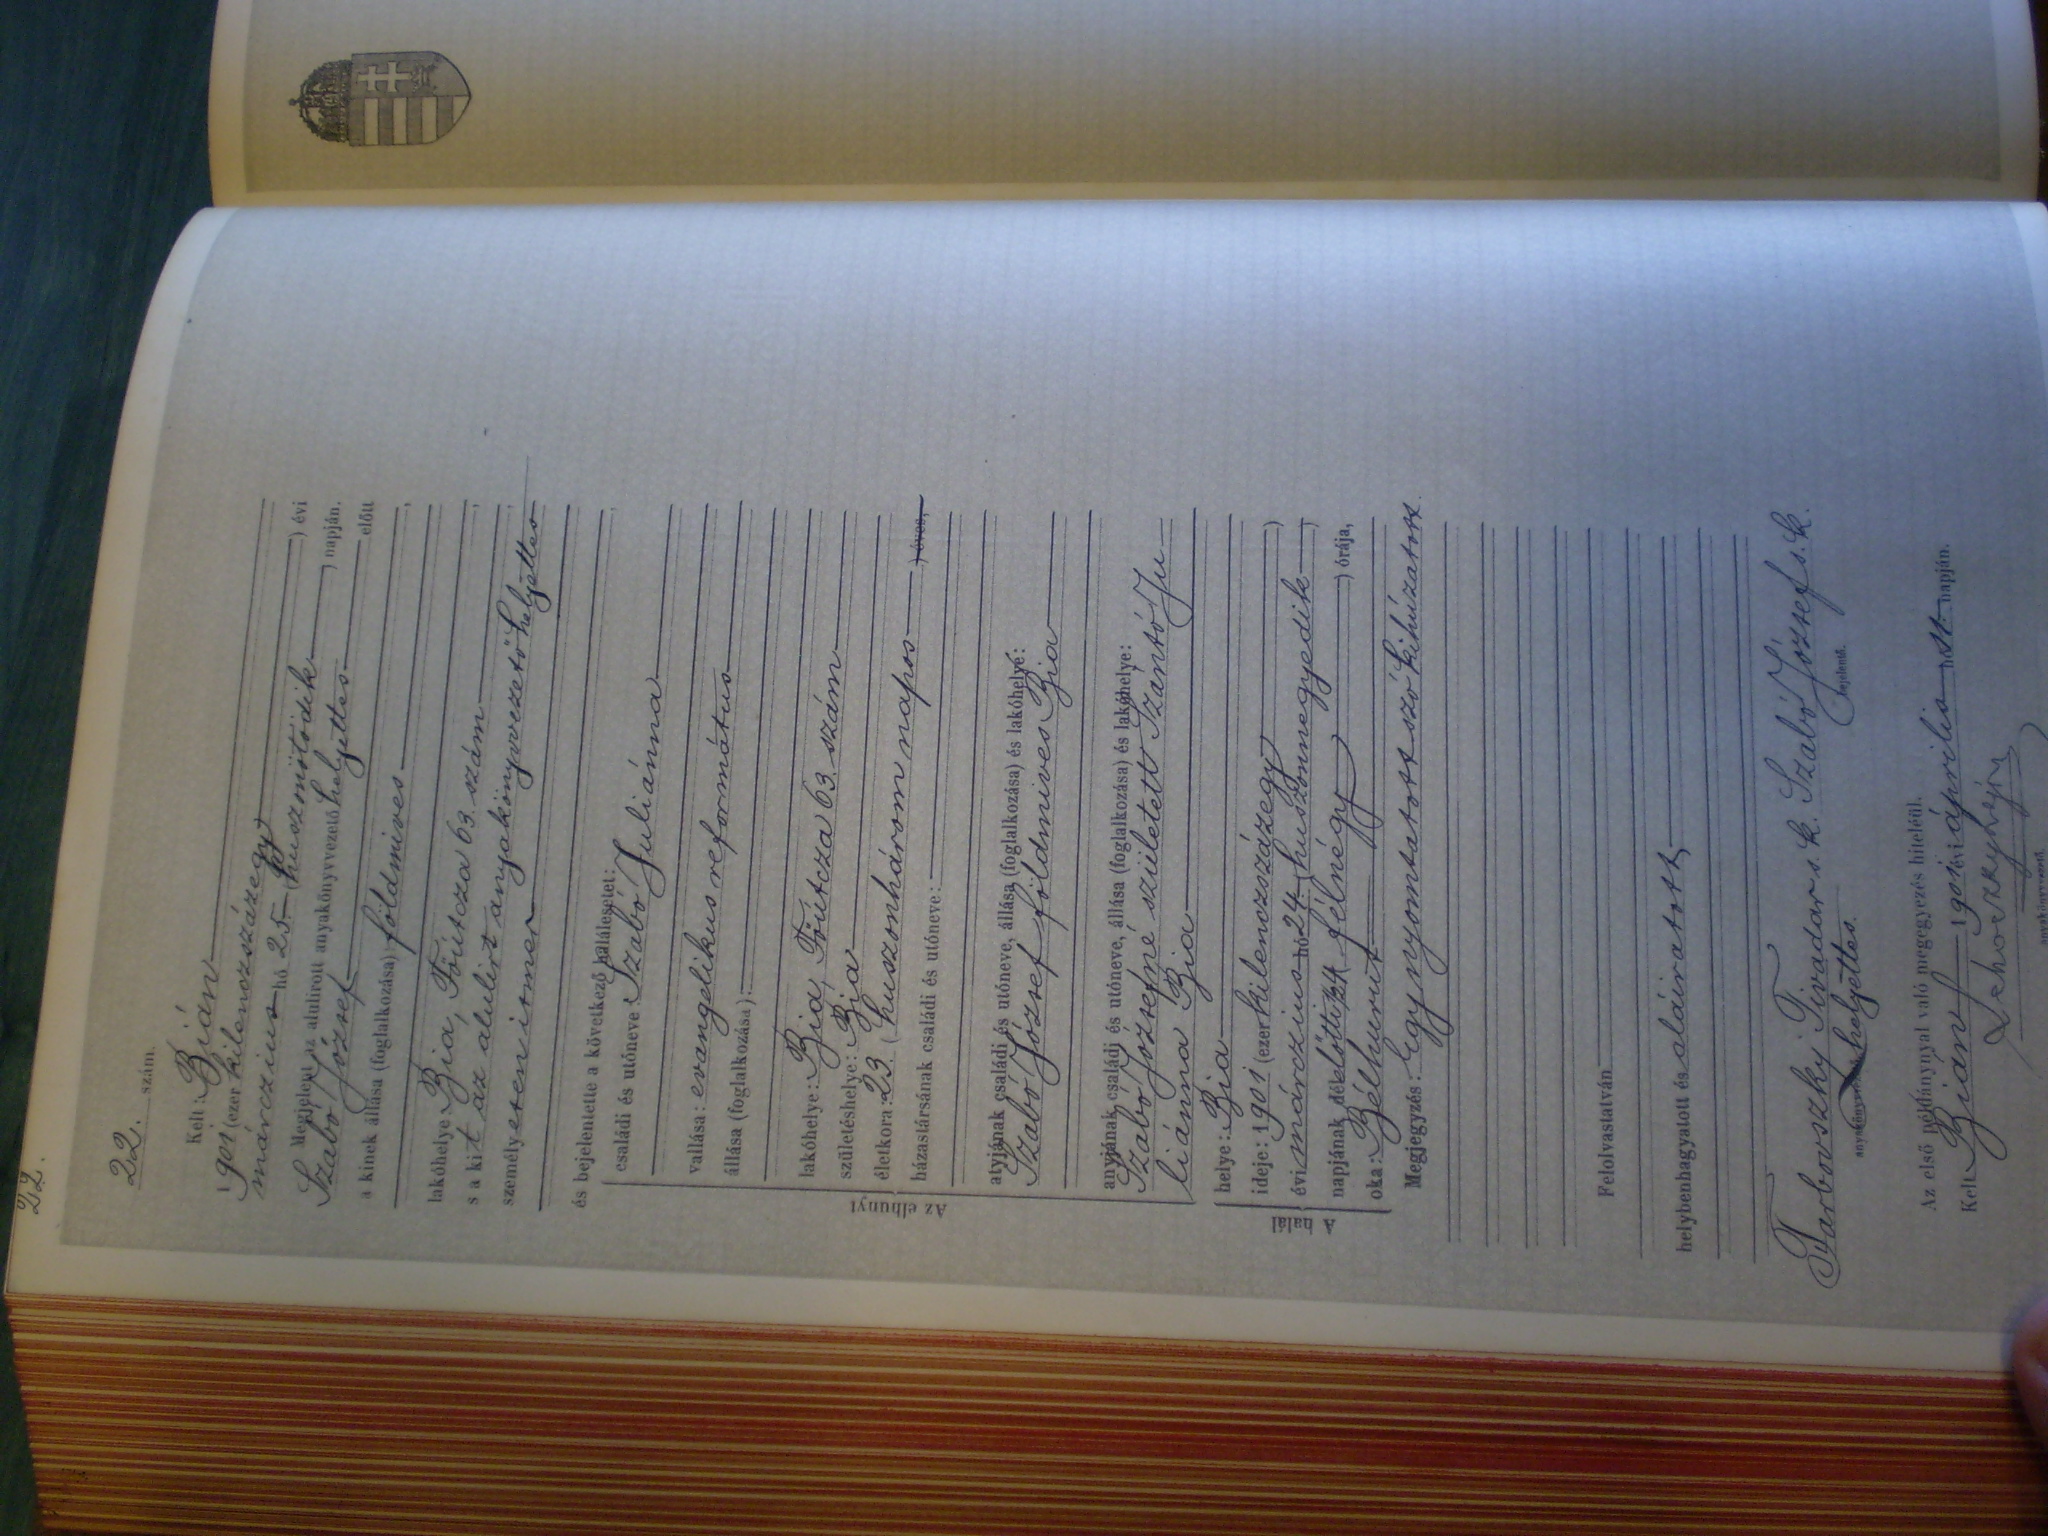 22.
22. szám.
Kelt: Bián
1901 (ezerkilenczszázegy) évi
márczius hó 25. (huszonötödik) napján.
Megjelent az alulirott anyakönyvvezető helyettes előtt
Szabó József
a kinek állása (foglalkozása) földmives,
lakóhelye Bia, Főútcza 63. szám,
s a kit az alulirt anyakönyvvezető helyettes
személyesen ismer
és bejelentette a következő halálesetet:
Az elhunyt
családi és utóneve Szabó Juliánna,
vallása: evangelikus református
állása (foglalkozása):
lakóhelye: Bia, Főútcza 63. szám
születéshelye: Bia
életkora: 23. (huszonhárom napos) éves,
házastársának családi és utóneve:
atyjának családi és utóneve, állása (foglalkozása) és lakóhelye:
Szabó József földmives Bia
anyjának családi és utóneve, állása (foglalkozása) és lakóhelye:
Szabó Józsefné született Szántó Ju
liánna Bia
A halál
helye: Bia
ideje: 1901 (ezerkilenczszázegy)
évi márczius hó 24. (huszonnegyedik)
napjának délelőtti (félnégy) órája,
oka: Bélhurut
Megjegyzés: Egy nyomtatott szó kihúzatott.
Felolvastatván
helybenhagyatott és aláiratott
Tarbovszky Tivadar s. k. Szabó József s. k.
helyettes. bejelentő.
Az első példánynyal való megegyezés hiteléül.
Kelt Bián 1901 évi április hó napján.
anyakönyvvezető.